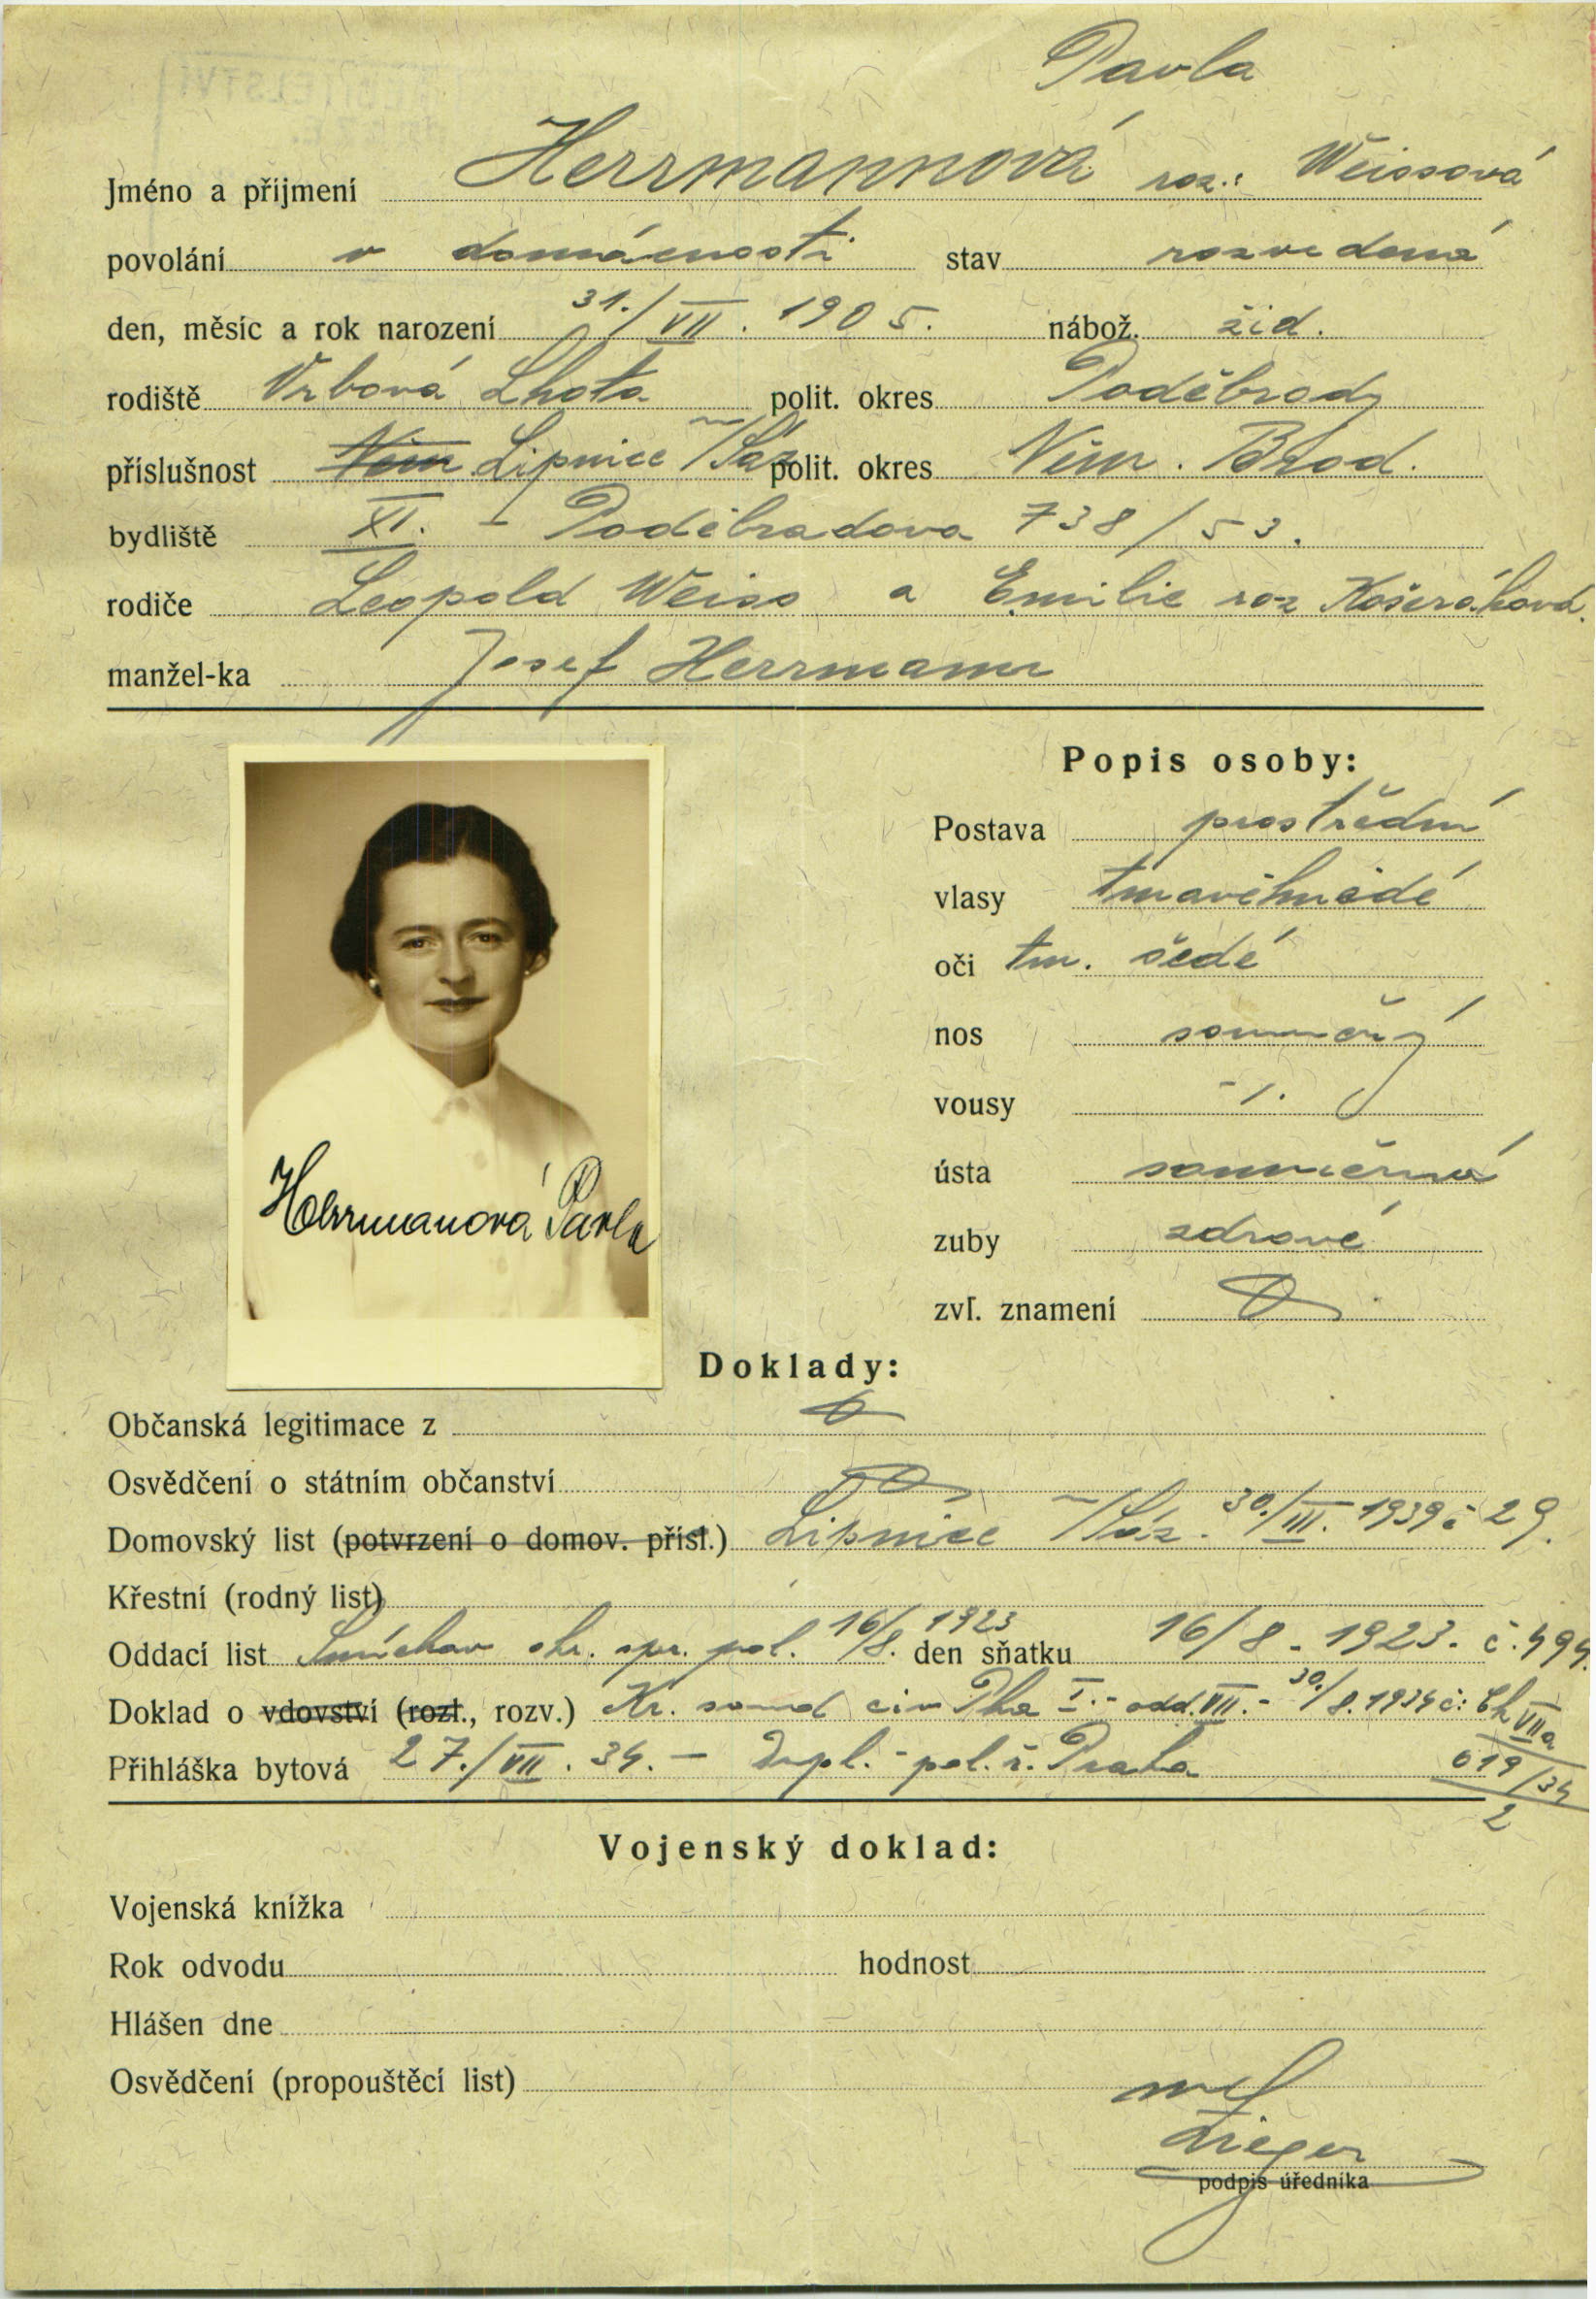 Pavla
Jméno a příjmení Herrmannová roz.: Weissová
povolání v domácnosti stav rozvedená
den, měsíc a rok narození 31./VII. 1905. nábož. žid.
rodiště Vrbová Lhota polit. okres Poděbrady
příslušnost Něm Lipnice n/Sáz polit. okres Něm. Brod.
bydliště XI. - Poděbradova 738/53.
rodiče Leopold Weiss a Emilie roz Košeráková.
manžel-ka Josef Herrmann
Popis osoby:
Postava prostřední
vlasy tmavěhnědé
oči tm. šedé
nos souměrný
vousy -/.
ústa souměrná
zuby zdravé
zvl. znamení
Herrmanová Pavla
Doklady:
Občanská legitimace z
Osvědčení o státním občanství
Domovský list (potvrzení o domov. přísl.) Lipnice n/Sáz. 30./III. 1939 č 29.
Křestní (rodný list)
Oddací list Smíchov okr. spr. pol. 16/8. 1923 den sňatku 16/8 - 1923. č. 494.
Doklad o vdovství (rozl., rozv.) Kr. soud civ Pha I.- odd. VII. - 30./8. 1934 č: Ck VIIa
619/34
2
Přihláška bytová 27./VII. 34. - Dupl. - pol. ř. Praha
Vojenský doklad:
Vojenská knížka
Rok odvodu hodnost
Hlášen dne
Osvědčení (propouštěcí list)
Zieger
podpis úředníka